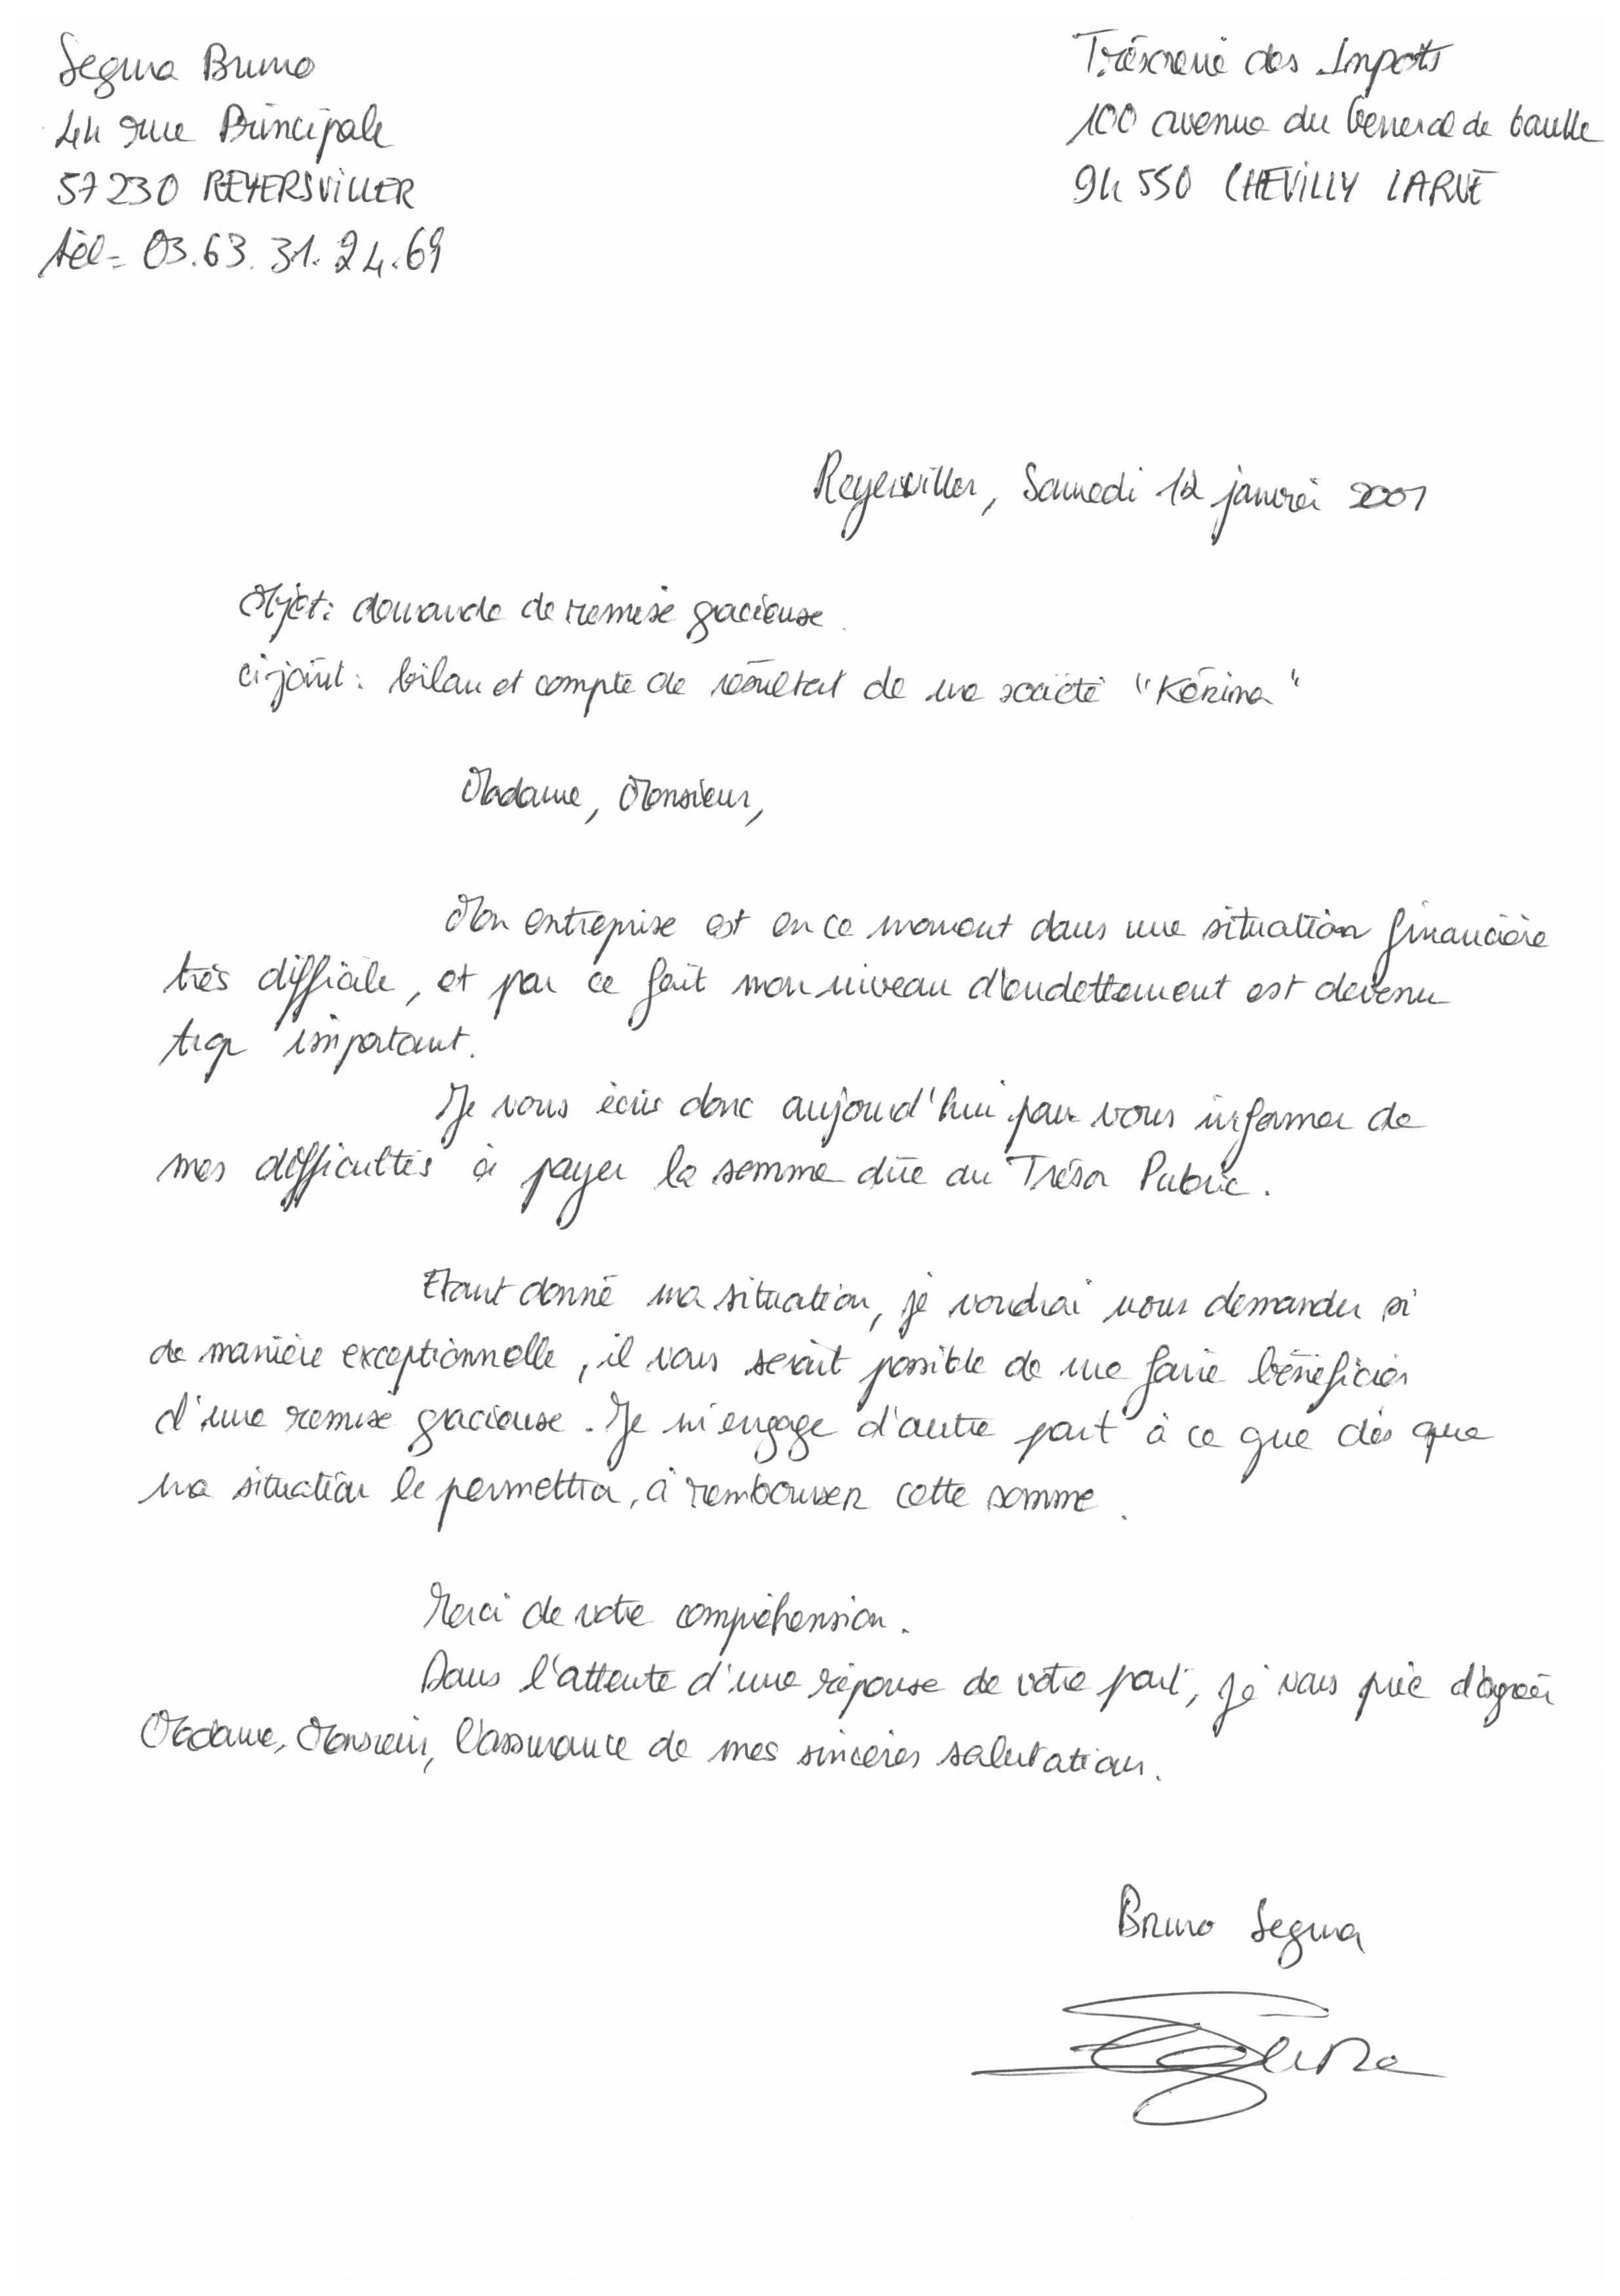 Segura Bruno
44 rue Principale
57230 REYERSVILLER
tèl= 03.63.31.24.69
Trésorerie des Impots
100 avenue du General de Gaulle
94 550 CHEVILLY LARUE
Reyersviller, Samedi 12 janvier 2001
Objet: demande de remise gracieuse.
ci-joint: bilan et compte de résultat de ma société "Kérima"
Madame, Monsieur,
Mon entreprise est en ce moment dans une situation financière
très difficile, et par ce fait mon niveau d'endettement est devenu
trop important.
Je vous écris donc aujourd'hui pour vous informer de
mes difficultés à payer la somme dûe au Trésor Public.
Etant donné ma situation, je voudrai vous demander si
de manière exceptionnelle, il vous serait possible de me faire bénéficier
d'une remise gracieuse. Je m'engage d'autre part à ce que dès que
ma situation le permettra, à rembourser cette somme.
Merci de votre compréhension.
Dans l'attente d'une réponse de votre part, je vous prie d'agréer
Madame, Monsieur, l'assurance de mes sincères salutations.
Bruno Segura
Segura